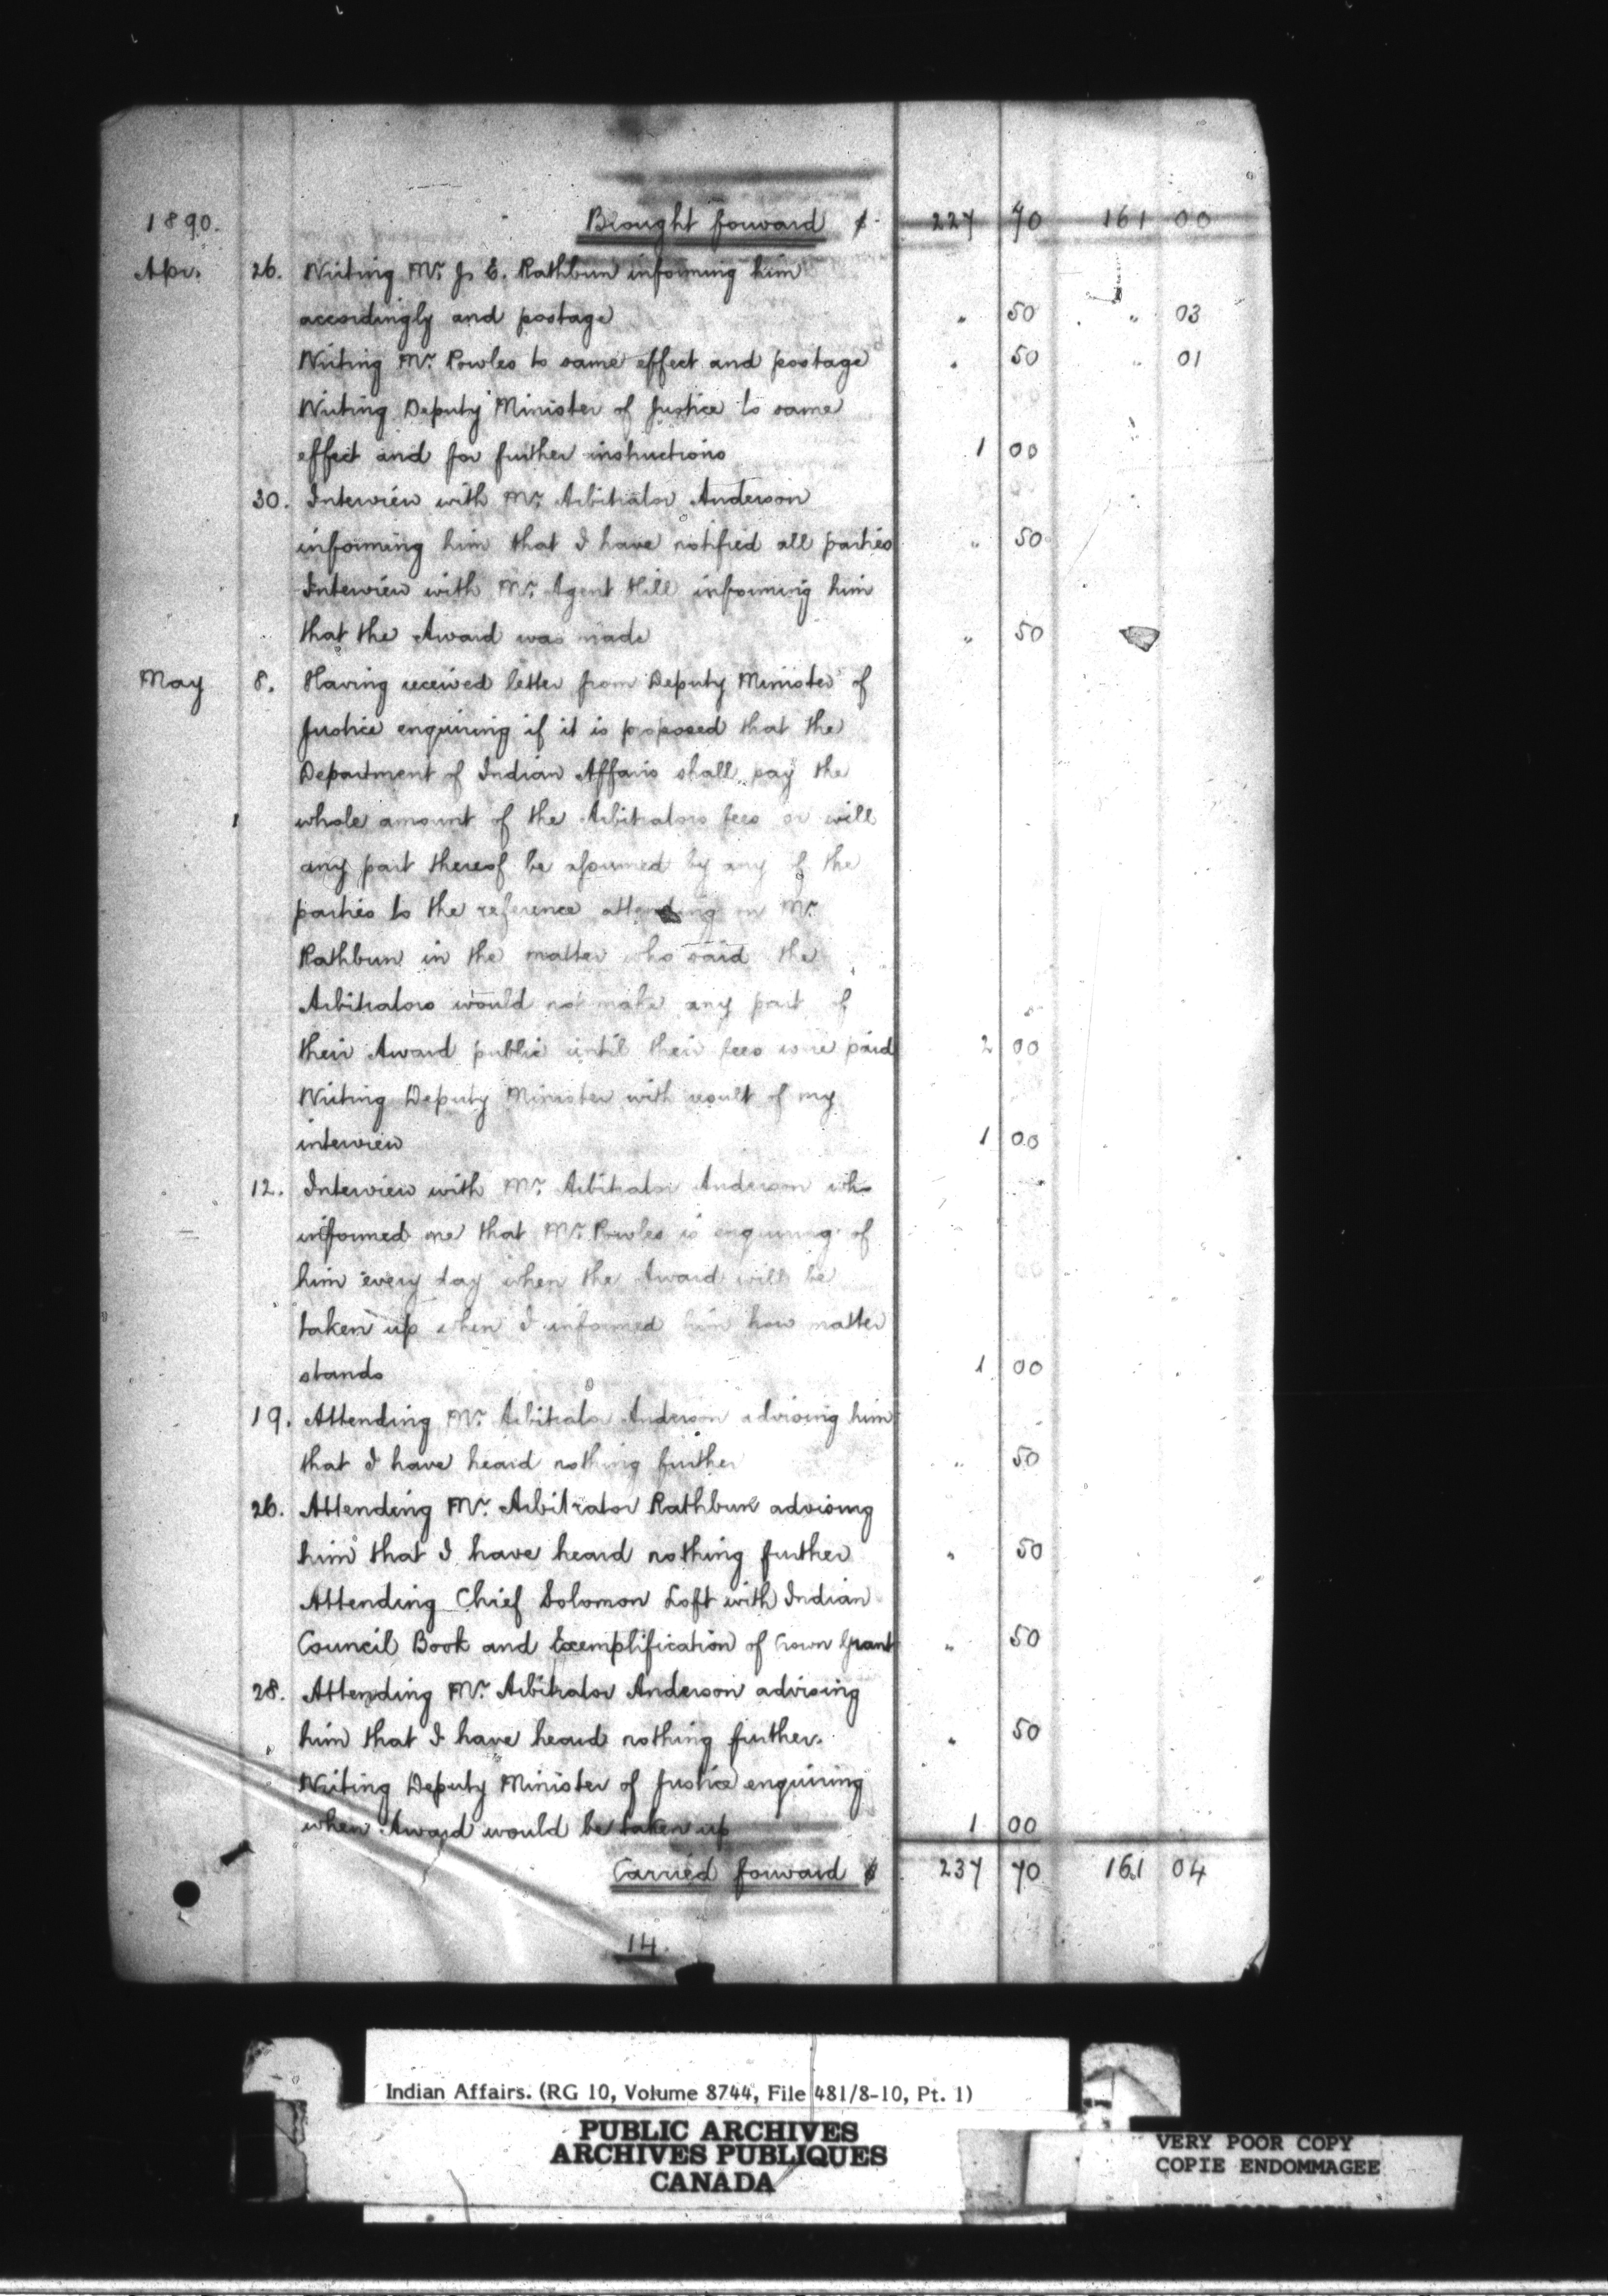 1890. Brought forward $ 227 70 161 00
Apr. 26. Writing Mr. J. E. Rathbun informing him
accordingly and postage " 50 " 03
Writing Mr. Powles to same effect and postage " 50 " 01
Writing Deputy Minister of Justice to same
effect and for further instructions 1 00
30. Interview with Mr. Arbitrator Anderson
informing him that I have notified all parties " 50
Interview with Mr. Agent Hill informing him
that the Award was made " 50
May 8. Having received letter from Deputy Minister of
Justice enquiring if it is proposed that the
Department of Indian Affairs shall pay the
whole amount of the Arbitrators fees or will
any part thereof be assumed by any of the
parties to the reference attending on Mr.
Rathbun in the matter who said the
Arbitrators would not make any part of
their Award public until their fees were paid 2 00
Writing Deputy Minister with result of my
interview 1 00
12. Interview with Mr. Arbitrator Anderson who
informed me that Mr. Powles is enquiring of
him every day when the Award will be
taken up when I informed him how matter
stands 1 00
19. Attending Mr. Arbitrator Anderson advising him
that I have heard nothing further " 50
26. Attending Mr. Arbitrator Rathbun advising
him that I have heard nothing further " 50
Attending Chief Solomon Loft with Indian
Council Book and Exemplification of Crown Grant " 50
28. Attending Mr. Arbitrator Anderson advising
him that I have heard nothing further. " 50
Writing Deputy Minister of Justice enquiring
when Award would be taken up 1 00
Carried forward $ 237 70 161 04
14.
Indian Affairs. (RG 10, Volume 8744, File 481/8-10, Pt. 1)
PUBLIC ARCHIVES
ARCHIVES PUBLIQUES
CANADA
VERY POOR COPY
COPIE ENDOMMAGEE